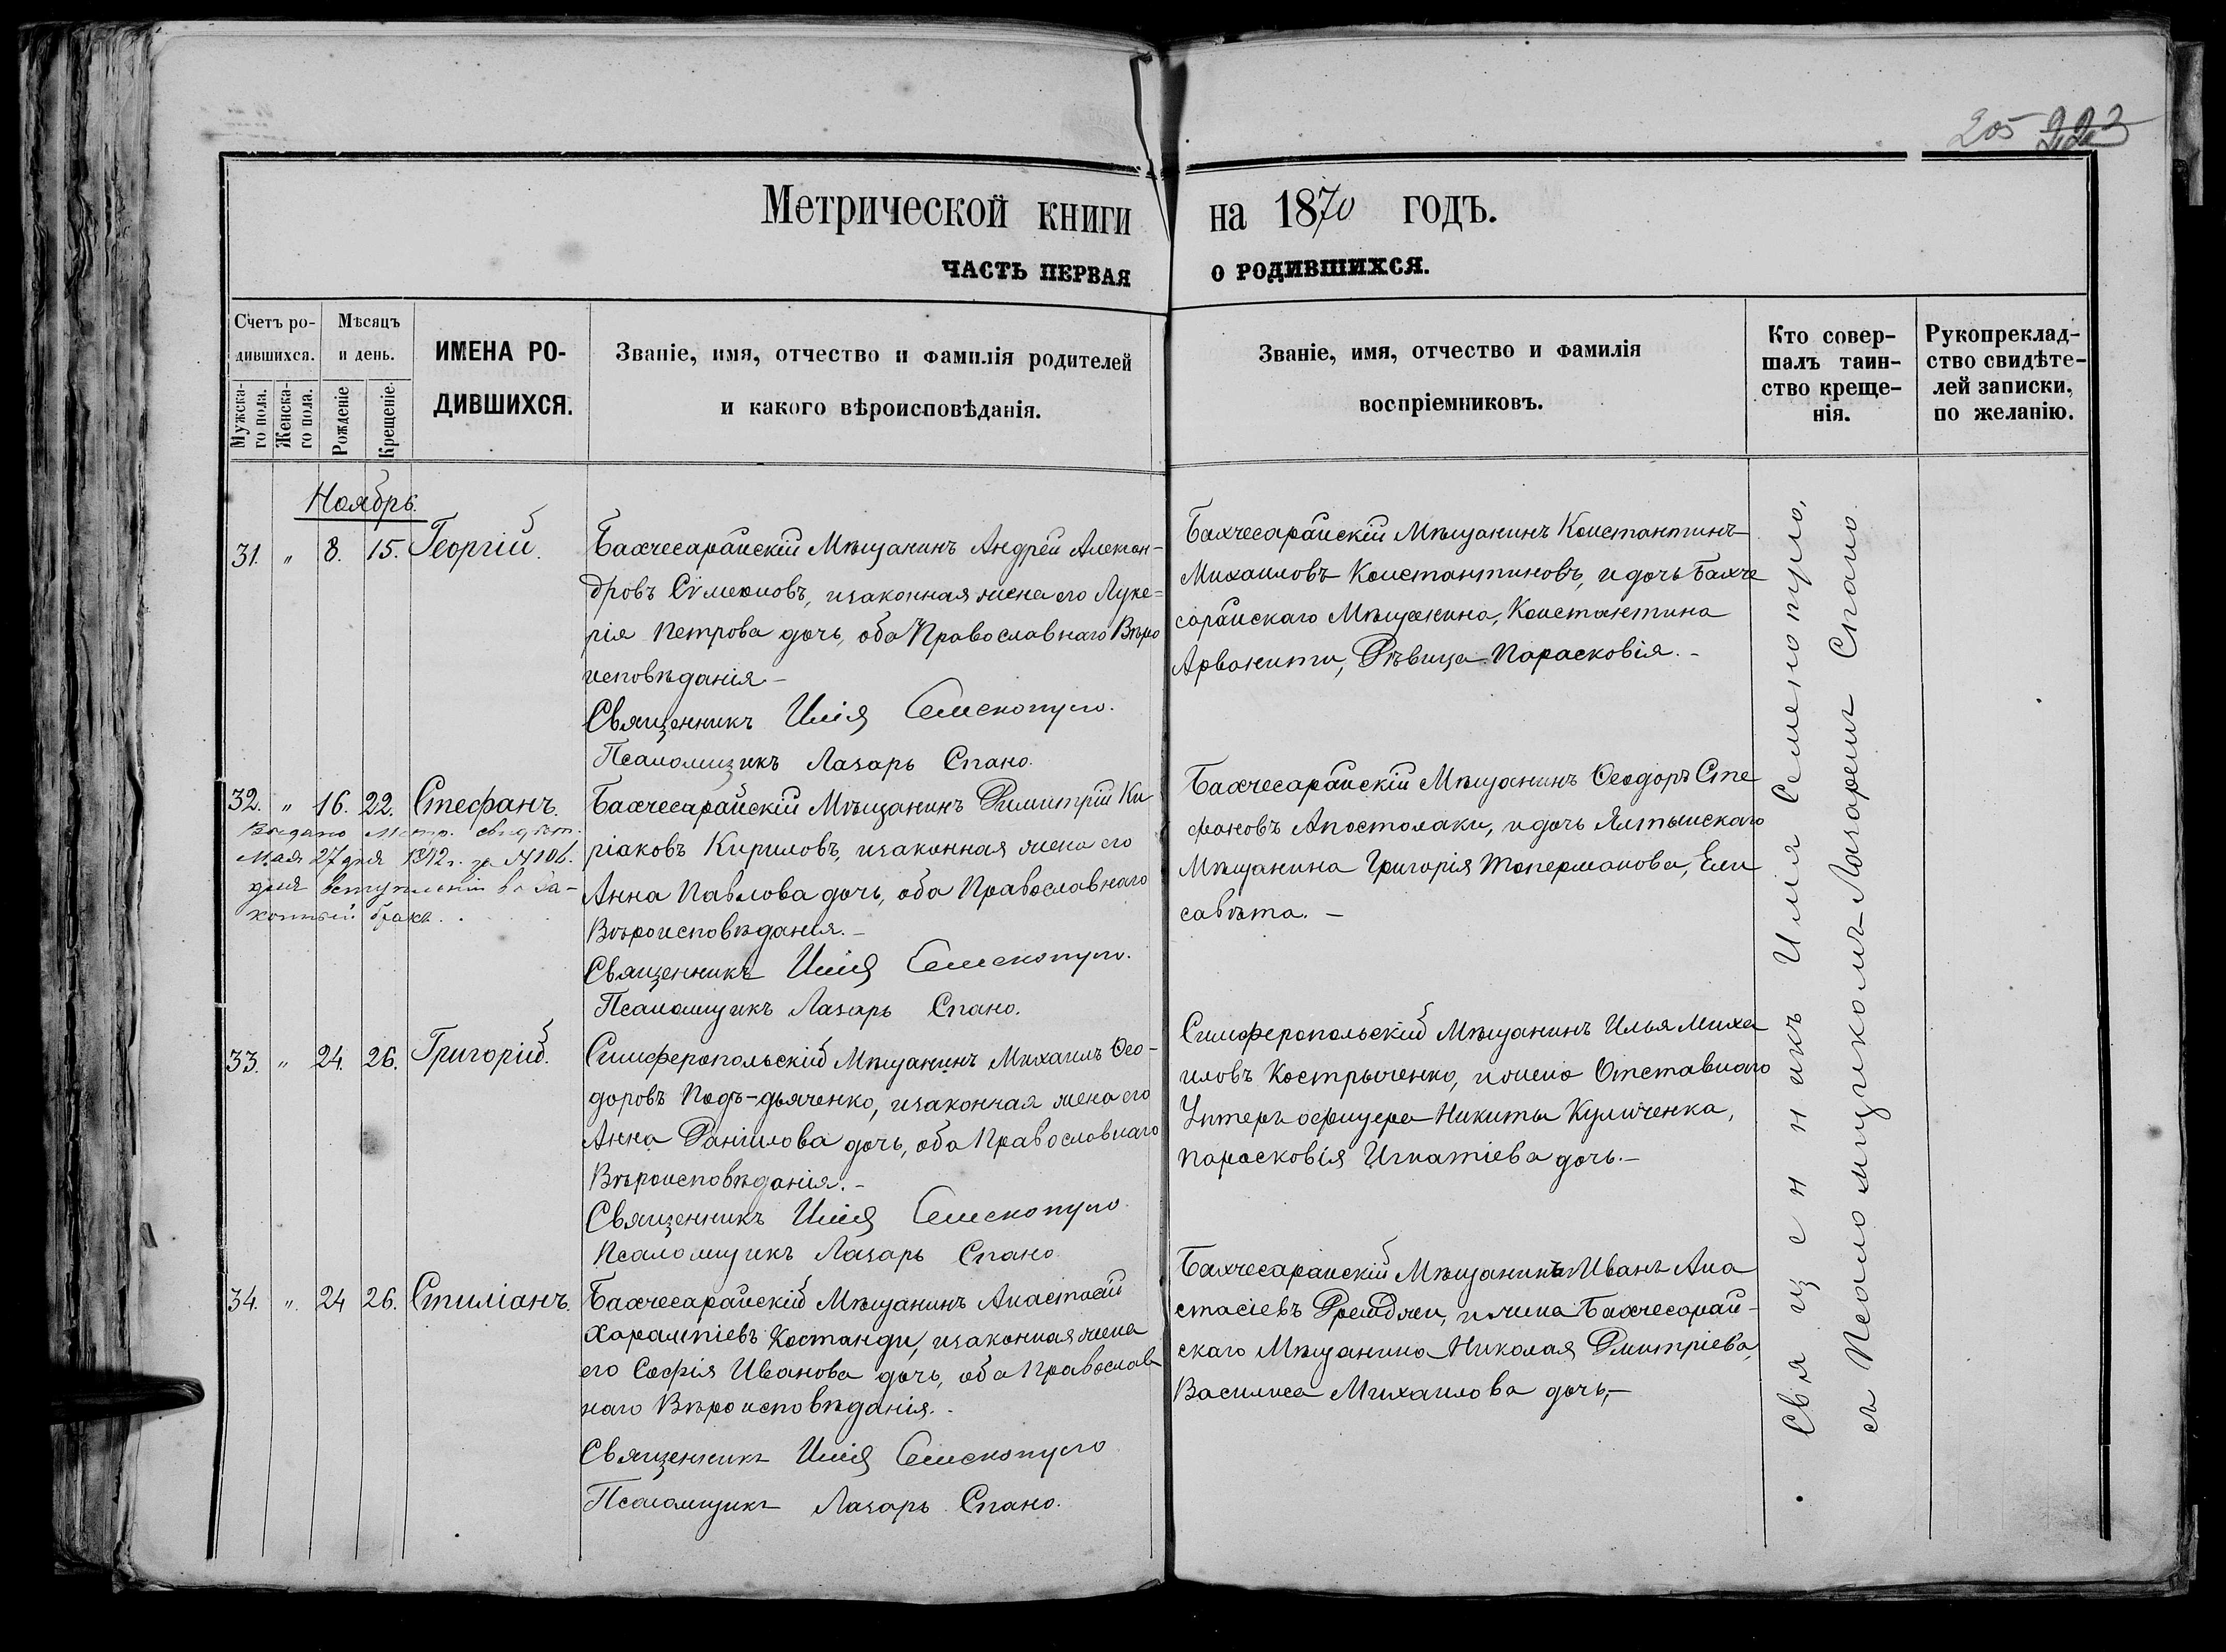 205 223
Метрической книги на 1870 годъ.
ЧАСТЬ ПЕРВАЯ О РОДИВШИХСЯ.
Счетъ ро-
дившихся.
Мужска-
го пола.
Женска-
го пола.
Мѣсяцъ
и день.
Рожденіе
Крещеніе.
ИМЕНА РО-
ДИВШИХСЯ.
Званіе, имя, отчество и фамилія родителей
и какого вѣроисповѣданія.
Званіе, имя, отчество и фамилія
воспріемниковъ.
Кто совер-
шалъ таин-
ство креще-
нія.
Рукопреклад-
ство свидѣте-
лей записки,
по желанію.
Ноябрь.
31. " 8. 15. Георгій.
Бахчесарайскій Мѣщанинъ Андрей Алексан-
дровъ Сѵмеоновъ, изаконная жена его Луке=
рія Петрова дочь, оба Православнаго Вѣро
исповѣданія.-
Священникъ Илія Семенопуло.
Псаломщикъ Лазарь Спано.
Бахчесарайскій Мѣщанинъ Константинъ
Михаиловъ Константиновъ, и дочь Бахче
сарайскаго Мѣщанина, Константина
Арванити, Дѣвица Парасковія.-
32. " 16. 22. Стефанъ.
Выдано Метр. свидѣт.
Мая 27 дня 1892 г. за № 104.
для вступленія въ за-
конный бракъ.
Бахчесарайскій Мѣщанинъ Димитрій Ки
ріаковъ Кириловъ, изаконная жена его
Анна Павлова дочь, оба Православнаго
Вѣроисповѣданія.-
Священникъ Илія Семенопуло.
Псаломщикъ Лазарь Спано.
Бахчесарайскій Мѣщанинъ Ѳеодоръ Сте
фановъ Апостолаки, и дочь Ялтынскаго
Мѣщанина Григорія Топерманова, Ели
савѣта.-
33. " 24. 26. Григорій.
Симферопольскій Мѣщанинъ Михаилъ Ѳео-
доровъ Подъ-дьяченко, изаконная жена его
Анна Даніилова дочь, оба Православнаго
Вѣроисповѣданія.-
Священникъ Илія Семенопуло
Псаломщикъ Лазарь Спано.
Симферопольскій Мѣщанинъ Илья Миха
иловъ Кострыченко, и жена Отставнаго
Унтеръ офицера Никиты Куличенка,
Парасковія Игнатіева дочь.-
34. " 24 26. Стиліанъ.
Бахчесарайскій Мѣщанинъ Анастасій
Харампіевъ Костанди, изаконная жена
его Софія Иванова дочь, оба Православ
наго Вѣроисповѣданія.-
Священникъ Илія Семенопуло
Псаломщикъ Лазарь Спано.
Бахчесарайскій Мѣщанинъ Иванъ Ана
стасіевъ и жена Бахчесарай-
скаго Мѣщанина Николая Дмитріева,
Василиса Михаилова дочь,-
Священникъ Илія Семенопуло,
съ Псаломщикомъ Лазаремъ Спано.